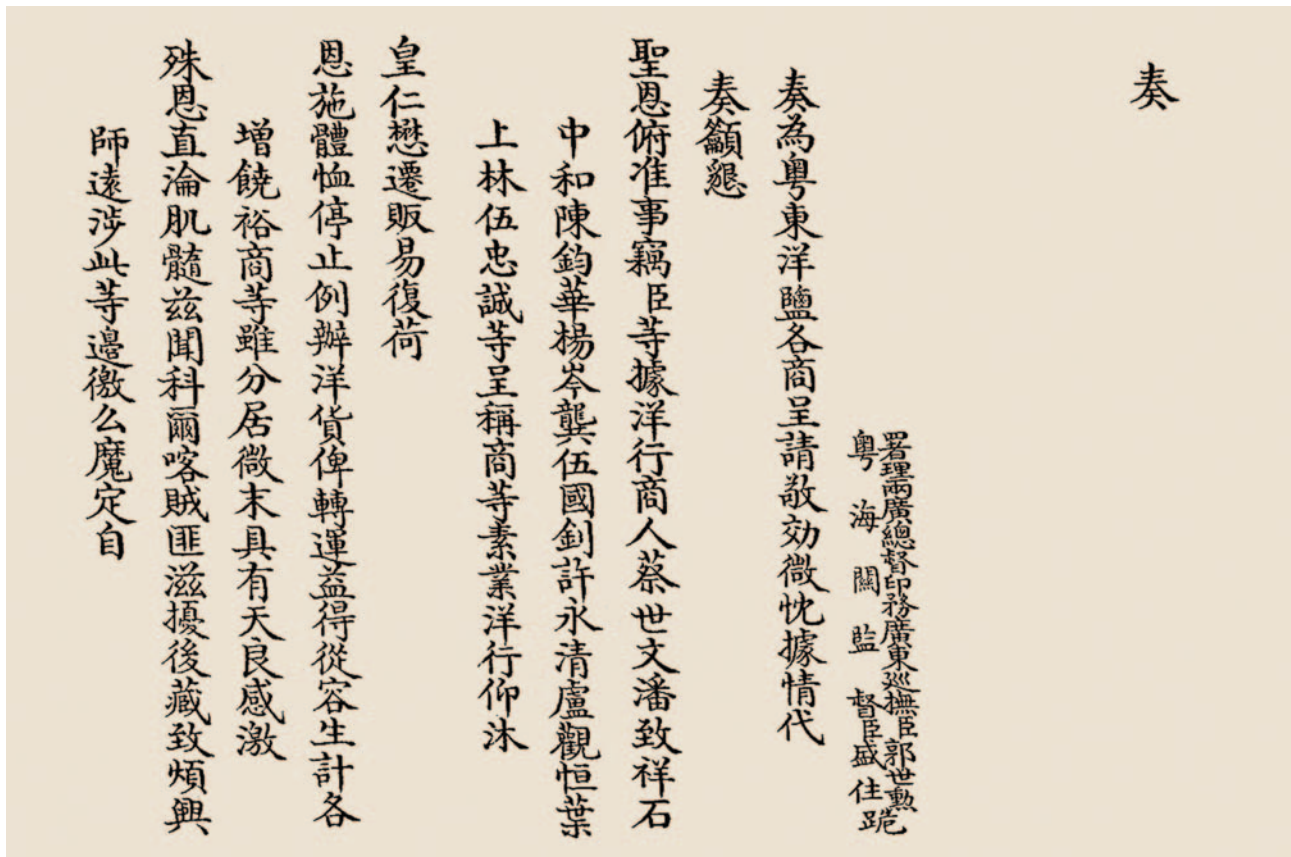 奏
署理兩廣總督印務廣東巡撫臣郭世勳
粵海關監督臣盛住跪
奏為粵東洋鹽各商呈請敬効微忱據情代
奏籲懇
聖恩俯准事竊臣等據洋行商人蔡世文潘致祥石
中和陳鈞華楊岑龔伍國釗許永清盧觀恒葉
上林伍忠誠等呈稱商等素業洋行仰沐
皇仁懋遷販易復荷
恩施體恤停止例辦洋貨俾轉運益得從容生計各
增饒裕商等雖分居微末具有天良感激
殊恩直淪肌髓茲聞科爾喀賊匪滋擾後藏致煩興
師遠涉此等邊徼么魔定自